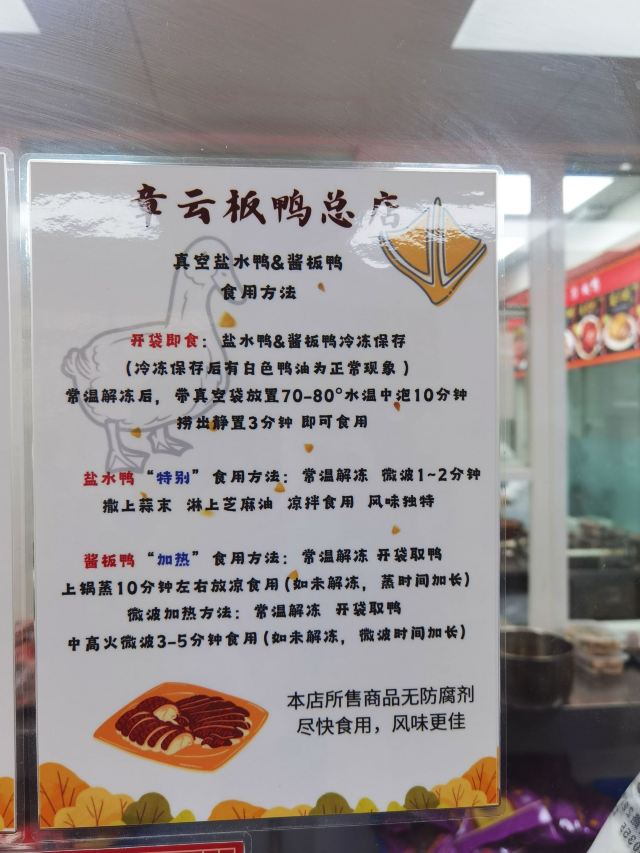 章云板鸭总店
真空盐水鸭&酱板鸭
食用方法
开袋即食：盐水鸭&酱板鸭冷冻保存
（冷冻保存后有白色鸭油为正常现象）
常温解冻后，带真空袋放置70-80°水温中泡10分钟
捞出静置3分钟 即可食用
盐水鸭“特别”食用方法：常温解冻 微波1~2分钟
撒上蒜末 淋上芝麻油 凉拌食用 风味独特
酱板鸭“加热”食用方法：常温解冻 开袋取鸭
上锅蒸10分钟左右放凉食用(如未解冻，蒸时间加长)
微波加热方法：常温解冻 开袋取鸭
中高火微波3-5分钟食用(如未解冻，微波时间加长)
本店所售商品无防腐剂
尽快食用，风味更佳